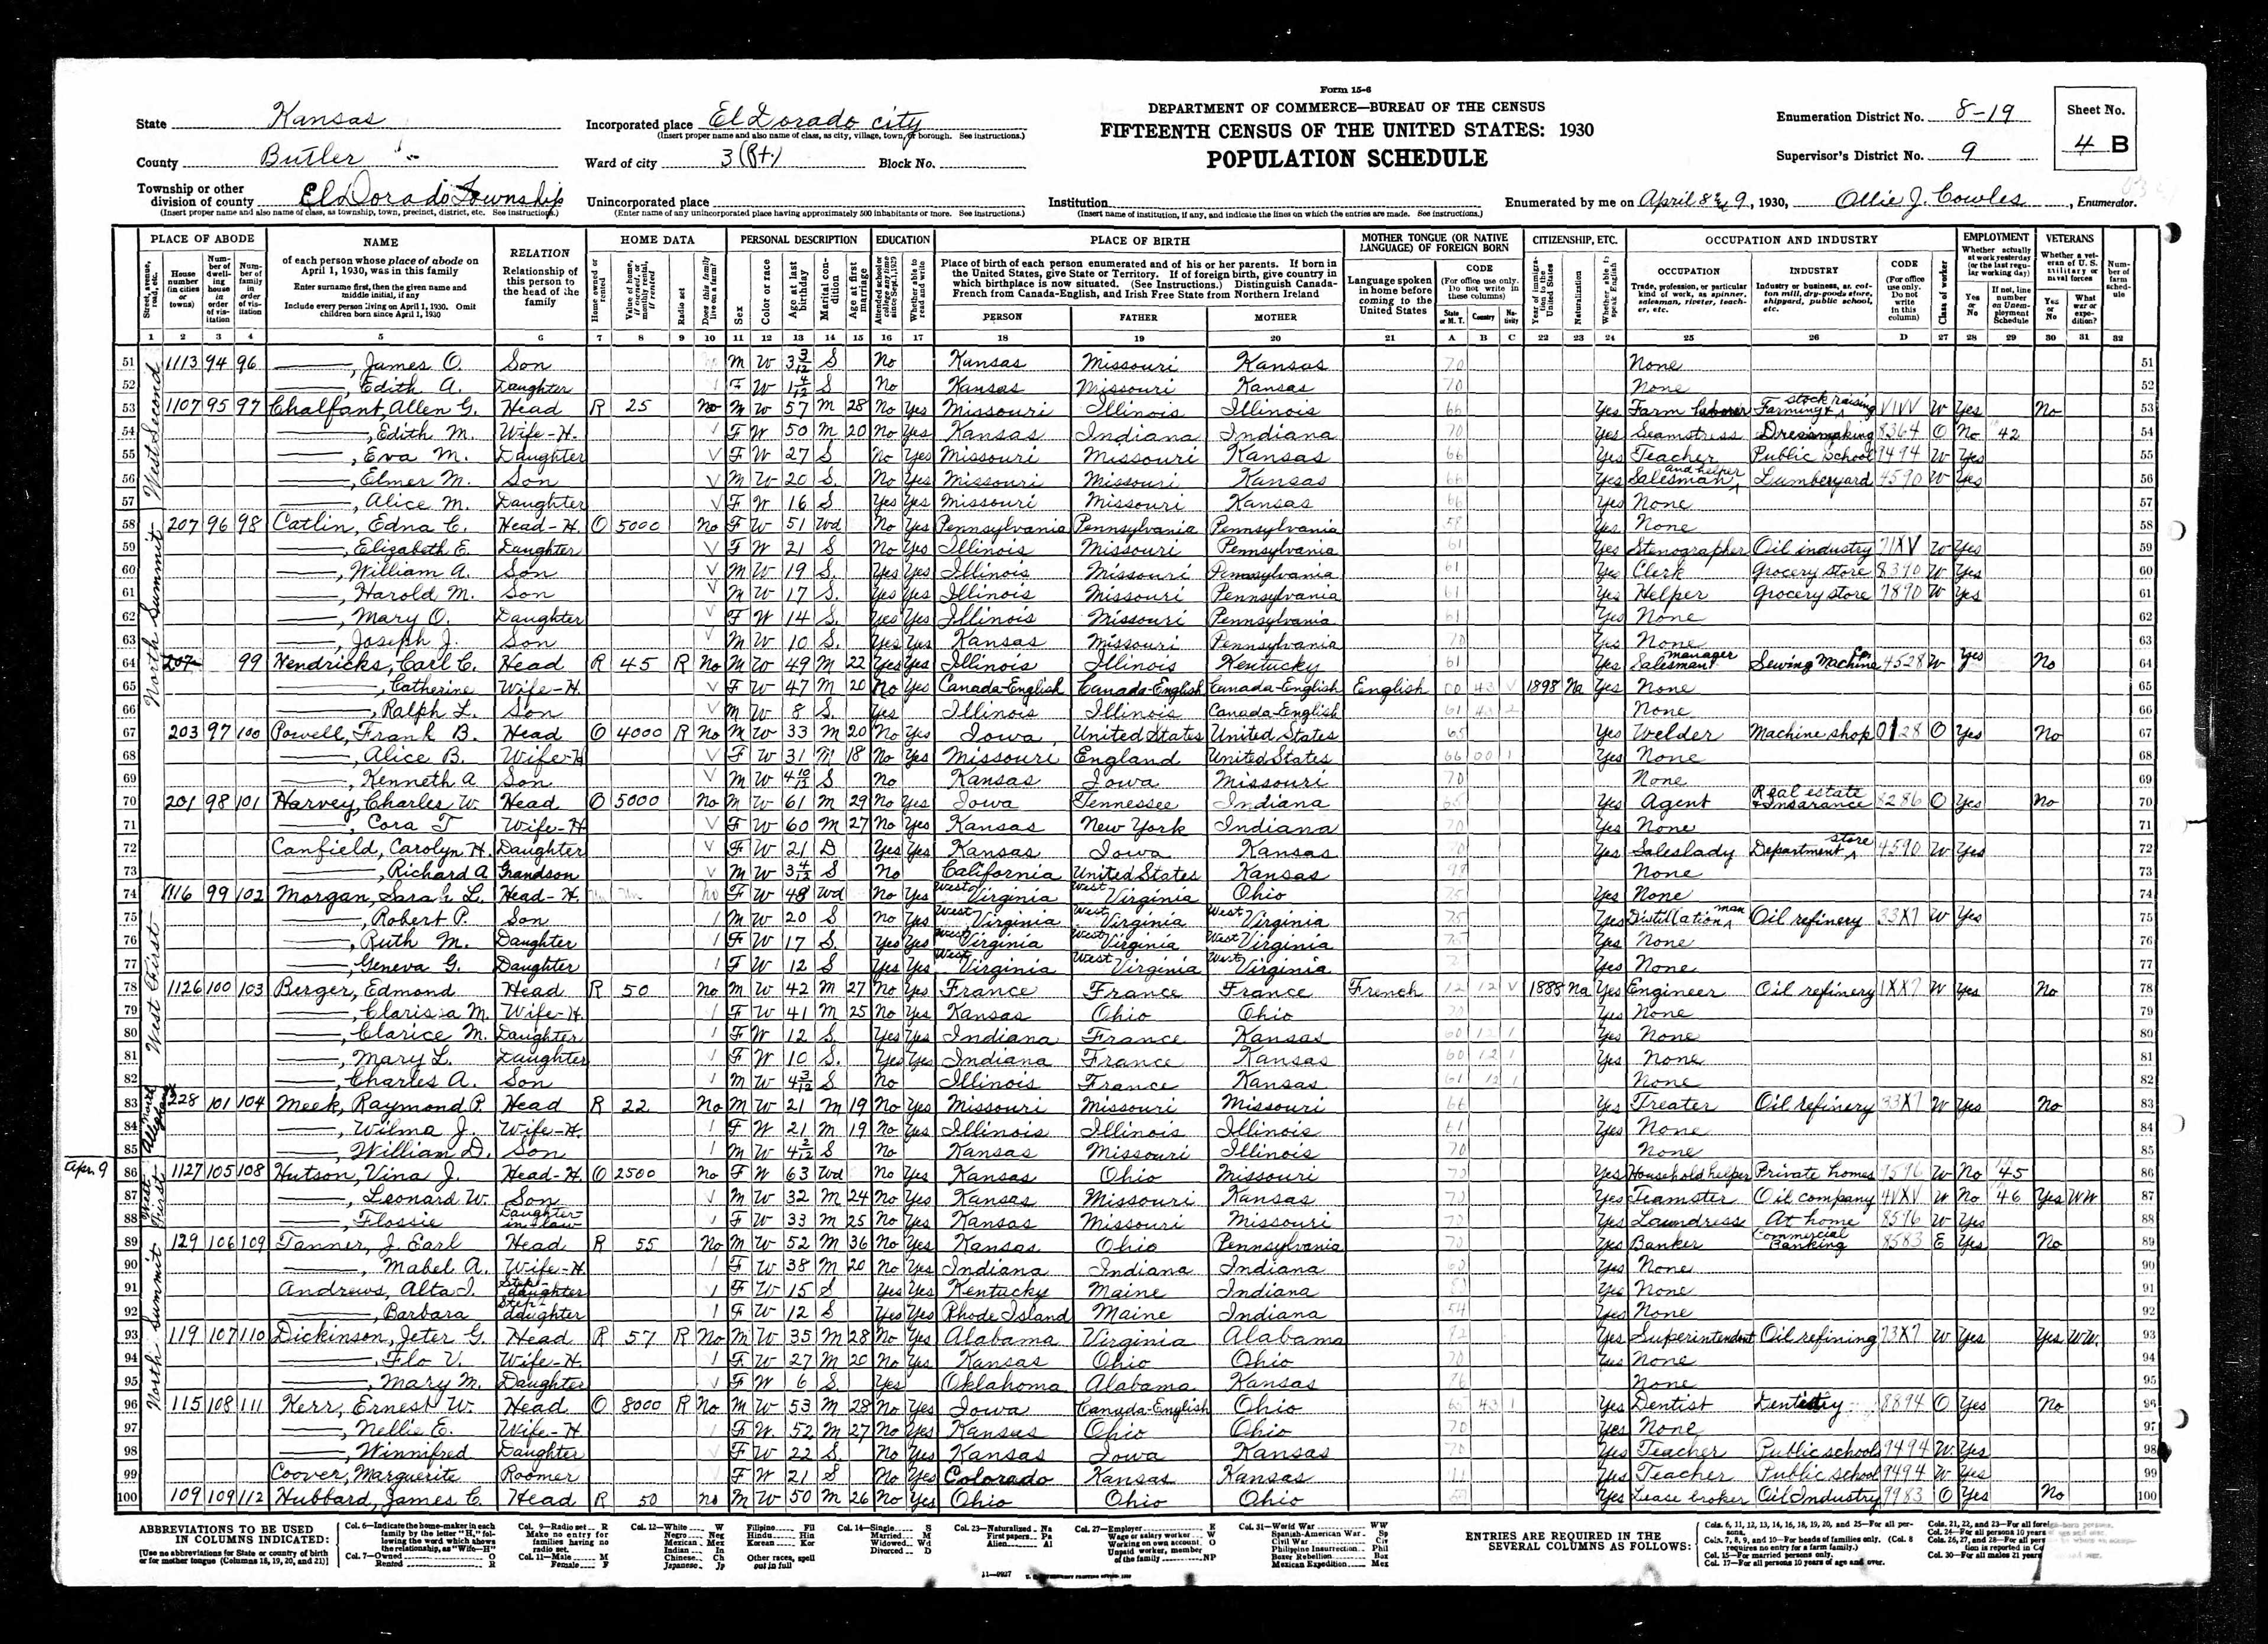 Form 15-6
DEPARTMENT OF COMMERCE—BUREAU OF THE CENSUS
FIFTEENTH CENSUS OF THE UNITED STATES: 1930
POPULATION SCHEDULE
State Kansas
County Butler
Township or other division of county El Dorado Township
(Insert proper name and also name of class, as township, town, precinct, district, etc. See instructions.)
Incorporated place El Dorado city
(Insert proper name and also name of class, as city, village, town, or borough. See instructions.)
Ward of city 3 (Pt.) Block No.
Unincorporated place
(Enter name of any unincorporated place having approximately 500 inhabitants or more. See instructions.)
Institution
(Insert name of institution, if any, and indicate the lines on which the entries are made. See instructions.)
Enumeration District No. 8-19
Supervisor's District No. 9
Sheet No. 4 B
Enumerated by me on April 8 & 9, 1930, Ollie J. Cowles, Enumerator.
PLACE OF ABODE NAME RELATION HOME DATA PERSONAL DESCRIPTION EDUCATION PLACE OF BIRTH MOTHER TONGUE (OR NATIVE LANGUAGE) OF FOREIGN BORN CITIZENSHIP, ETC. OCCUPATION AND INDUSTRY EMPLOYMENT VETERANS
51 1113 94 96 ——, James O. Son M W 3 3/12 S No Kansas Missouri Kansas 70 None 51
52 ——, Edith A. Daughter F W 1 4/12 S No Kansas Missouri Kansas 70 None 52
53 1107 95 97 Chalfant, Allen G. Head R 25 No M W 57 M 28 No Yes Missouri Illinois Illinois 66 Yes Farm laborer Farming & stock raising VIVV W Yes No 53
54 ——, Edith M. Wife-H. F W 50 M 20 No Yes Kansas Indiana Indiana 70 Yes Seamstress Dressmaking 8364 O No 42 54
55 ——, Eva M. Daughter V F W 27 S No Yes Missouri Missouri Kansas 66 Yes Teacher Public School 9494 W Yes 55
56 ——, Elmer M. Son V M W 20 S. No Yes Missouri Missouri Kansas 66 Yes Salesman and helper Lumberyard 4590 W Yes 56
57 ——, Alice M. Daughter V F W 16 S Yes Yes Missouri Missouri Kansas 66 Yes None 57
58 207 96 98 Catlin, Edna C. Head-H. O 5000 No F W 51 Wd No Yes Pennsylvania Pennsylvania Pennsylvania 58 Yes None 58
59 ——, Elizabeth E. Daughter V F W 21 S No Yes Illinois Missouri Pennsylvania 61 Yes Stenographer Oil industry 71XV W Yes 59
60 ——, William A. Son V M W 19 S. Yes Yes Illinois Missouri Pennsylvania 61 Yes Clerk Grocery store 8390 W Yes 60
61 ——, Harold M. Son V M W 17 S. Yes Yes Illinois Missouri Pennsylvania 61 Yes Helper Grocery store 7890 W Yes 61
62 ——, Mary O. Daughter V F W 14 S. Yes Yes Illinois Missouri Pennsylvania 61 Yes None 62
63 ——, Joseph J. Son V M W 10 S. Yes Yes Kansas Missouri Pennsylvania 70 Yes None 63
64 207 99 Hendricks, Carl C. Head R 45 R No M W 49 M 22 Yes Yes Illinois Illinois Kentucky 61 Yes Salesman manager Sewing Machine Co. 4528 W Yes No 64
65 ——, Catherine Wife-H. V F W 47 M 20 No Yes Canada-English Canada-English Canada-English English 00 43 V 1898 Na Yes None 65
66 ——, Ralph L. Son V M W 8 S. Yes Illinois Illinois Canada-English 61 43 2 None 66
67 203 97 100 Powell, Frank B. Head O 4000 R No M W 33 M 20 No Yes Iowa United States United States 65 Yes Welder Machine shop 0128 O Yes No 67
68 ——, Alice B. Wife-H V F W 31 M 18 No Yes Missouri England United States 66 00 1 Yes None 68
69 ——, Kenneth A Son V M W 4 10/12 S No Kansas Iowa Missouri 70 None 69
70 201 98 101 Harvey, Charles W. Head O 5000 No M W 61 M 29 No Yes Iowa Tennessee Indiana 65 Yes Agent Real estate & Insurance 8286 O Yes No 70
71 ——, Cora T Wife-H V F W 60 M 27 No Yes Kansas New York Indiana 70 Yes None 71
72 Canfield, Carolyn H. Daughter V F W 21 D Yes Yes Kansas Iowa Kansas 70 Yes Saleslady Department store 4590 W Yes 72
73 ——, Richard A Grandson V M W 3 4/12 S No California United States Kansas 98 None 73
74 1116 99 102 Morgan, Sarah L. Head-H. Un no F W 48 Wd No Yes West Virginia West Virginia Ohio 75 Yes None 74
75 ——, Robert P. Son M W 20 S No Yes West Virginia West Virginia West Virginia 75 Yes Distillation man Oil refinery 33X7 W Yes 75
76 ——, Ruth M. Daughter F W 17 S. Yes Yes West Virginia West Virginia West Virginia 75 Yes None 76
77 ——, Geneva G. Daughter F W 12 S Yes Yes West Virginia West Virginia West Virginia Yes None 77
78 1126 100 103 Berger, Edmond Head R 50 No M W 42 M 27 No Yes France France France French 12 12 V 1888 Na Yes Engineer Oil refinery 1XX7 W Yes No 78
79 ——, Clarissa M. Wife-H. F W 41 M 25 No Yes Kansas Ohio Ohio 70 Yes None 79
80 ——, Clarice M. Daughter F W 12 S. Yes Yes Indiana France Kansas 60 12 1 Yes None 80
81 ——, Mary L. Daughter F W 10 S. Yes Yes Indiana France Kansas 60 12 1 Yes None 81
82 ——, Charles A. Son M W 4 3/12 S No Illinois France Kansas 61 12 1 None 82
83 228 101 104 Meek, Raymond P. Head R 22 No M W 21 M 19 No Yes Missouri Missouri Missouri 66 Yes Treater Oil refinery 33X7 W Yes No 83
84 ——, Wilma J. Wife-H. F W 21 M 19 No Yes Illinois Illinois Illinois 61 Yes None 84
85 ——, William D. Son M W 4 2/12 S No Kansas Missouri Illinois 70 None 85
Apr. 9 86 1127 105 108 Hutson, Vina J. Head-H. O 2500 No F W 63 Wd No Yes Kansas Ohio Missouri 70 Yes Household helper Private homes 9596 W No 45 86
87 ——, Leonard W. Son V M W 32 M 24 No Yes Kansas Missouri Kansas 70 Yes Teamster Oil company 4VXV W No 46 Yes WW 87
88 ——, Flossie Daughter-in-law F W 33 M 25 No Yes Kansas Missouri Missouri 70 Yes Laundress At home 8596 W Yes 88
89 129 106 109 Tanner, J. Earl Head R 55 No M W 52 M 36 No Yes Kansas Ohio Pennsylvania 70 Yes Banker Commercial Banking 8583 E Yes No 89
90 ——, Mabel A. Wife-H F W 38 M 20 No Yes Indiana Indiana Indiana 60 Yes None 90
91 Andrews, Alta I. Step-daughter F W 15 S Yes Yes Kentucky Maine Indiana Yes None 91
92 ——, Barbara Step-daughter F W 12 S Yes Yes Rhode Island Maine Indiana 54 Yes None 92
93 119 107 110 Dickinson, Jeter G. Head R 57 R No M W 35 M 28 No Yes Alabama Virginia Alabama 82 Yes Superintendent Oil refining 73X7 W Yes Yes WW. 93
94 ——, Flo V. Wife-H F W 27 M 20 No Yes Kansas Ohio Ohio 70 Yes None 94
95 ——, Mary M. Daughter F W 6 S Yes Oklahoma Alabama Kansas 76 None 95
96 115 108 111 Kerr, Ernest W. Head O 8000 R No M W 53 M 28 No Yes Iowa Canada-English Ohio 65 43 1 Yes Dentist Dentistry 8894 O Yes No 96
97 ——, Nellie E. Wife-H F W. 52 M 27 No Yes Kansas Ohio Ohio 70 Yes None 97
98 ——, Winnifred Daughter F W 22 S. No Yes Kansas Iowa Kansas 70 Yes Teacher Public schools 9494 W. Yes 98
99 Coover, Marguerite Roomer F W 21 S No Yes Colorado Kansas Kansas Yes Teacher Public School 9494 W Yes 99
100 109 109 112 Hubbard, James C. Head R 50 no M W 50 M 26 No Yes Ohio Ohio Ohio Yes Lease broker Oil Industry 9983 O Yes No 100
West Second
North Summit
West First
North Alleghany
West First
North Summit
ABBREVIATIONS TO BE USED IN COLUMNS INDICATED:
[Use no abbreviations for State or country of birth or for mother tongue (Columns 18, 19, 20, and 21)]
ENTRIES ARE REQUIRED IN THE SEVERAL COLUMNS AS FOLLOWS:
11—9927